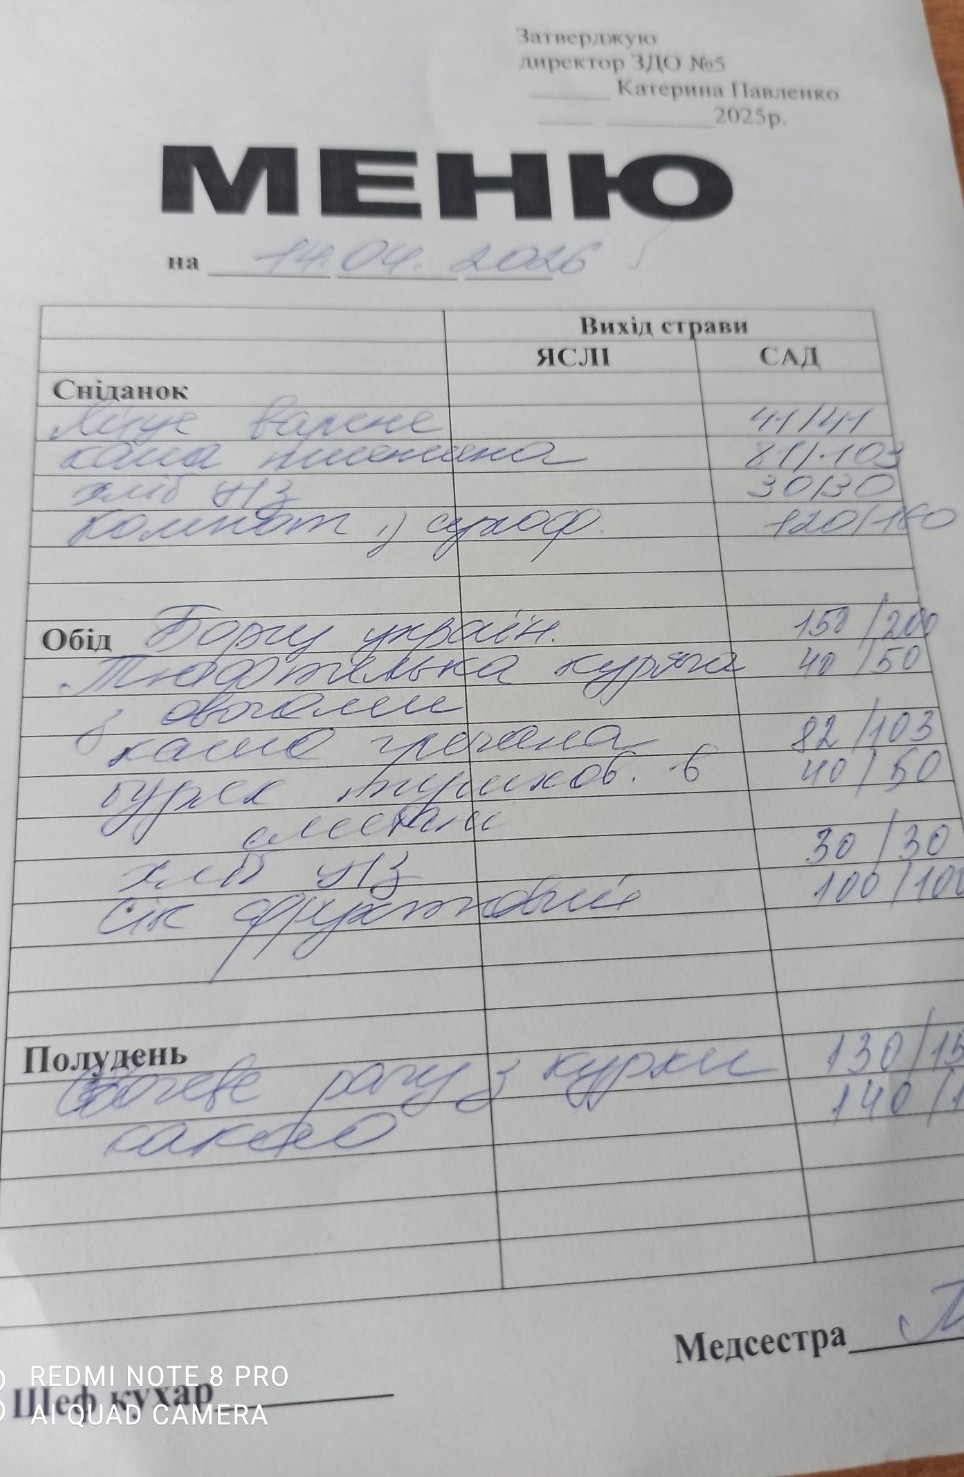 Затверджую
директор ЗДО №5
Катерина Павленко
2025р.
МЕНЮ
на 14.04.2026
Вихід страви
ЯСЛІ САД
Сніданок
Яйце варене 41/41
каша пшенична 81/103
хліб ц/з 30/30
Компот з сухоф. 120/180
Обід Борщ україн. 150/200
Тюфтелька куряча 40/50
з овочами
каша гречана 82/103
буряк тушков. в 40/50
сметані
хліб ц/з 30/30
сік фруктовий 100/100
Полудень
Овочеве рагу з курки 130/15
какао 140/1
Медсестра
Шеф кухар
REDMI NOTE 8 PRO
AI QUAD CAMERA